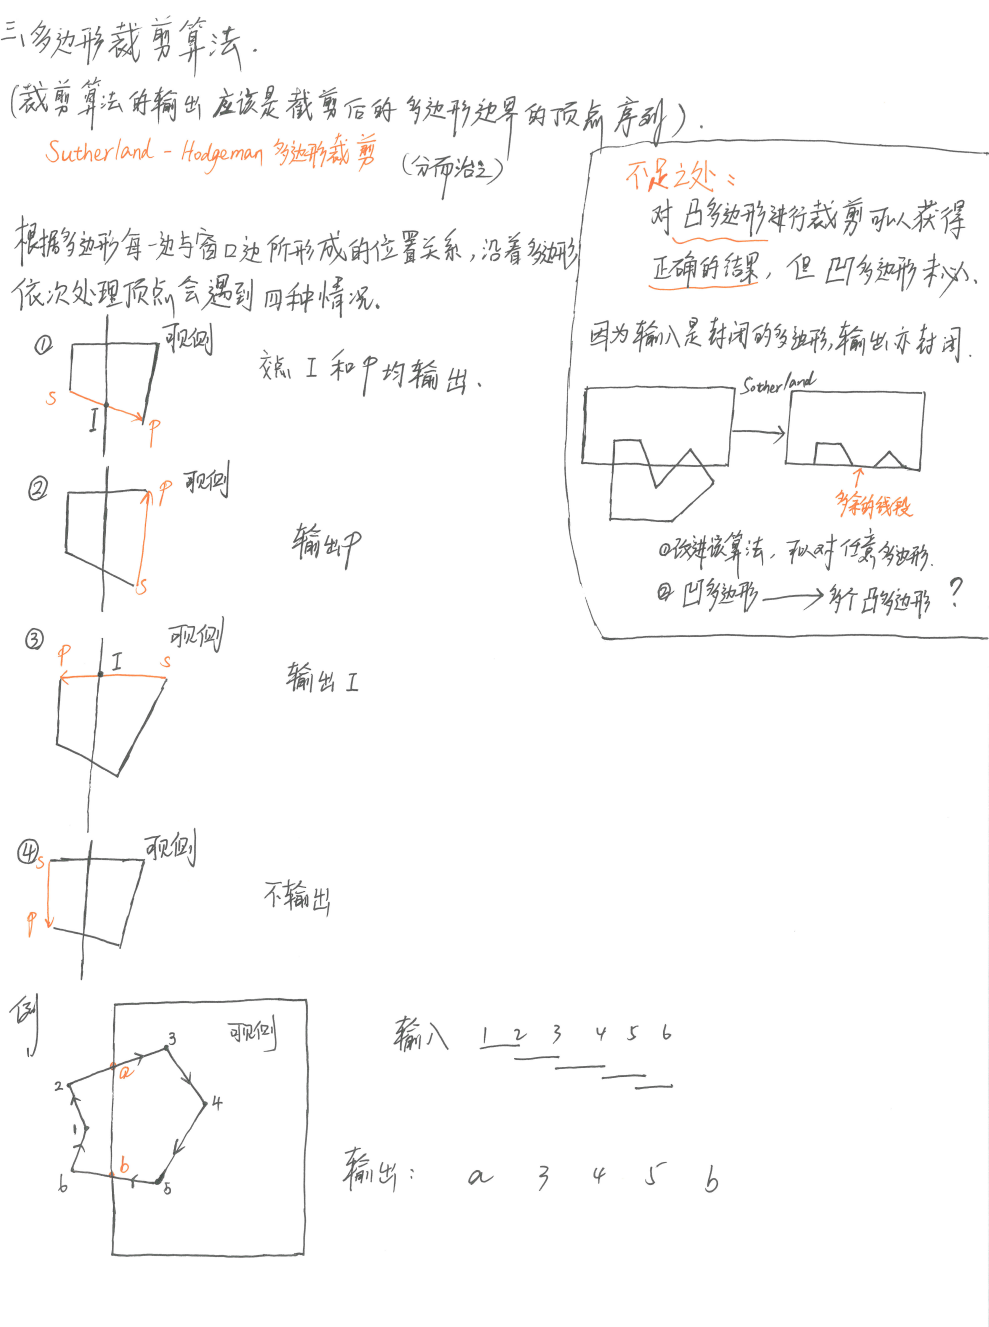 三、多边形裁剪算法.
(裁剪算法的输出应该是裁剪后的多边形边界的顶点序列).
Sutherland - Hodgeman 多边形裁剪 (分而治之)
根据多边形每一边与窗口边所形成的位置关系,沿着多边形
依次处理顶点会遇到四种情况.
① 可见侧
S I P
交点 I 和 P 均输出.
② 可见侧
P S
输出P
③ 可见侧
P I S
输出 I
④ 可见侧
S P
不输出
例1
可见侧
1 2 a 3 4 5 b 6
输入 1 2 3 4 5 6
输出: a 3 4 5 b
不足之处:
对凸多边形进行裁剪可以获得
正确的结果, 但凹多边形未必.
因为输入是封闭的多边形,输出亦封闭.
Sotherland
多余的线段
①改进该算法, 可以对任意多边形.
② 凹多边形 → 多个凸多边形 ?